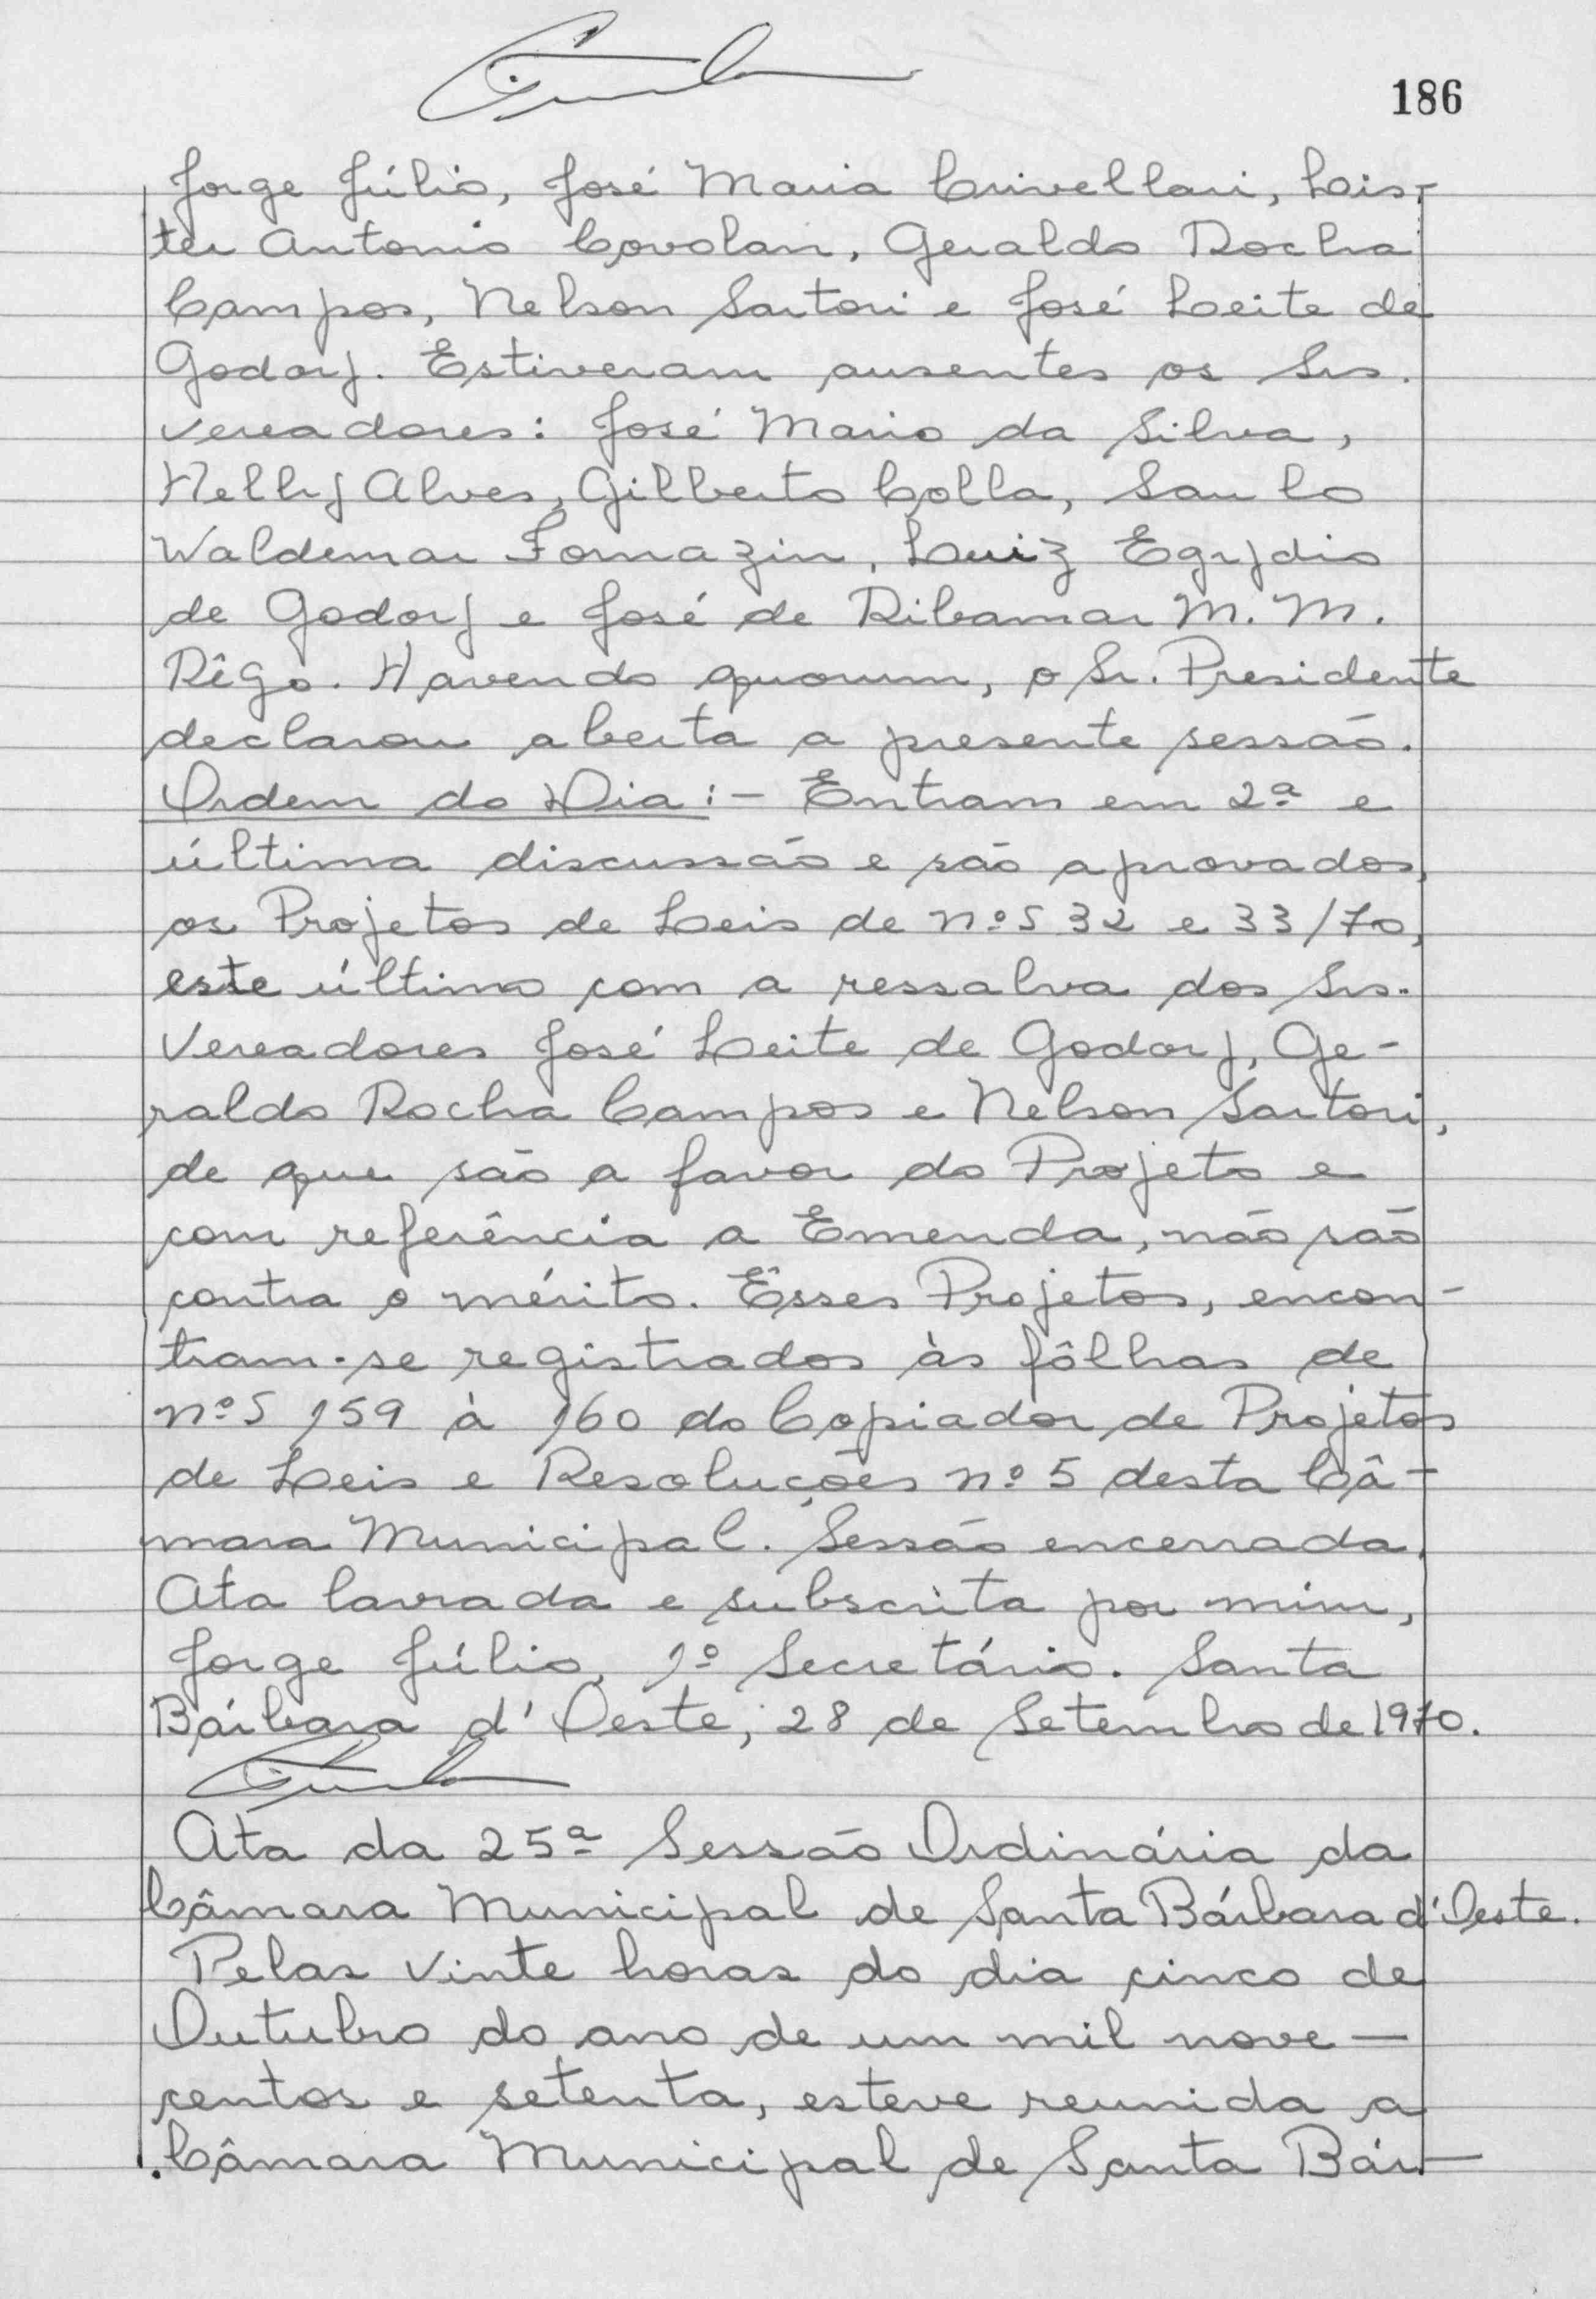 186
Jorge Júlio, José Maria Crivellari, Lis-
ter Antonio Covolan, Geraldo Rocha
Campos, Nelson Sartori e José Leite de
Godoy. Estiveram ausentes os Srs.
Vereadores: José Mario da Silva,
Helly Alves, Gilberto Colla, Saulo
Waldemar Fornazin, Luiz Egydio
de Godoy e José de Ribamar M. M.
Rêgo. Havendo quorum, o Sr. Presidente
declarou aberta a presente sessão.
Ordem do Dia:- Entram em 2ª e
última discussão e são aprovados,
os Projetos de Leis de nºs 32 e 33/70,
este último com a ressalva dos Srs.
Vereadores José Leite de Godoy, Ge-
raldo Rocha Campos e Nelson Sartori,
de que são a favor do Projeto e
com referência a Emenda, não são
contra o mérito. Êsses Projetos, encon-
tram-se registrados às fôlhas de
nºs 159 à 160 do Copiador de Projetos
de Leis e Resoluções nº 5 desta Câ-
mara Municipal. Sessão encerrada.
Ata lavrada e subscrita por mim,
Jorge Júlio, 1º Secretário. Santa
Bárbara d'Oeste, 28 de Setembro de 1970.
Ata da 25ª Sessão Ordinária da
Câmara Municipal de Santa Bárbara d'Oeste.
Pelas vinte horas do dia cinco de
Outubro do ano de um mil nove-
centos e setenta, esteve reunida a
Câmara Municipal de Santa Bár-